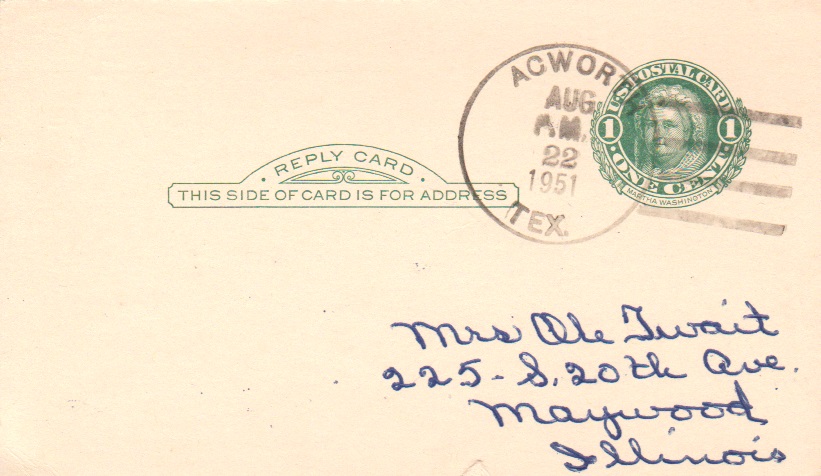 ACWORTH
AUG
A.M.
22
1951
TEX.
U.S. POSTAL CARD
1 1
· ONE CENT ·
MARTHA WASHINGTON
· REPLY CARD ·
THIS SIDE OF CARD IS FOR ADDRESS
Mrs Ole Twait
225 - S. 20th Ave.
Maywood
Illinois